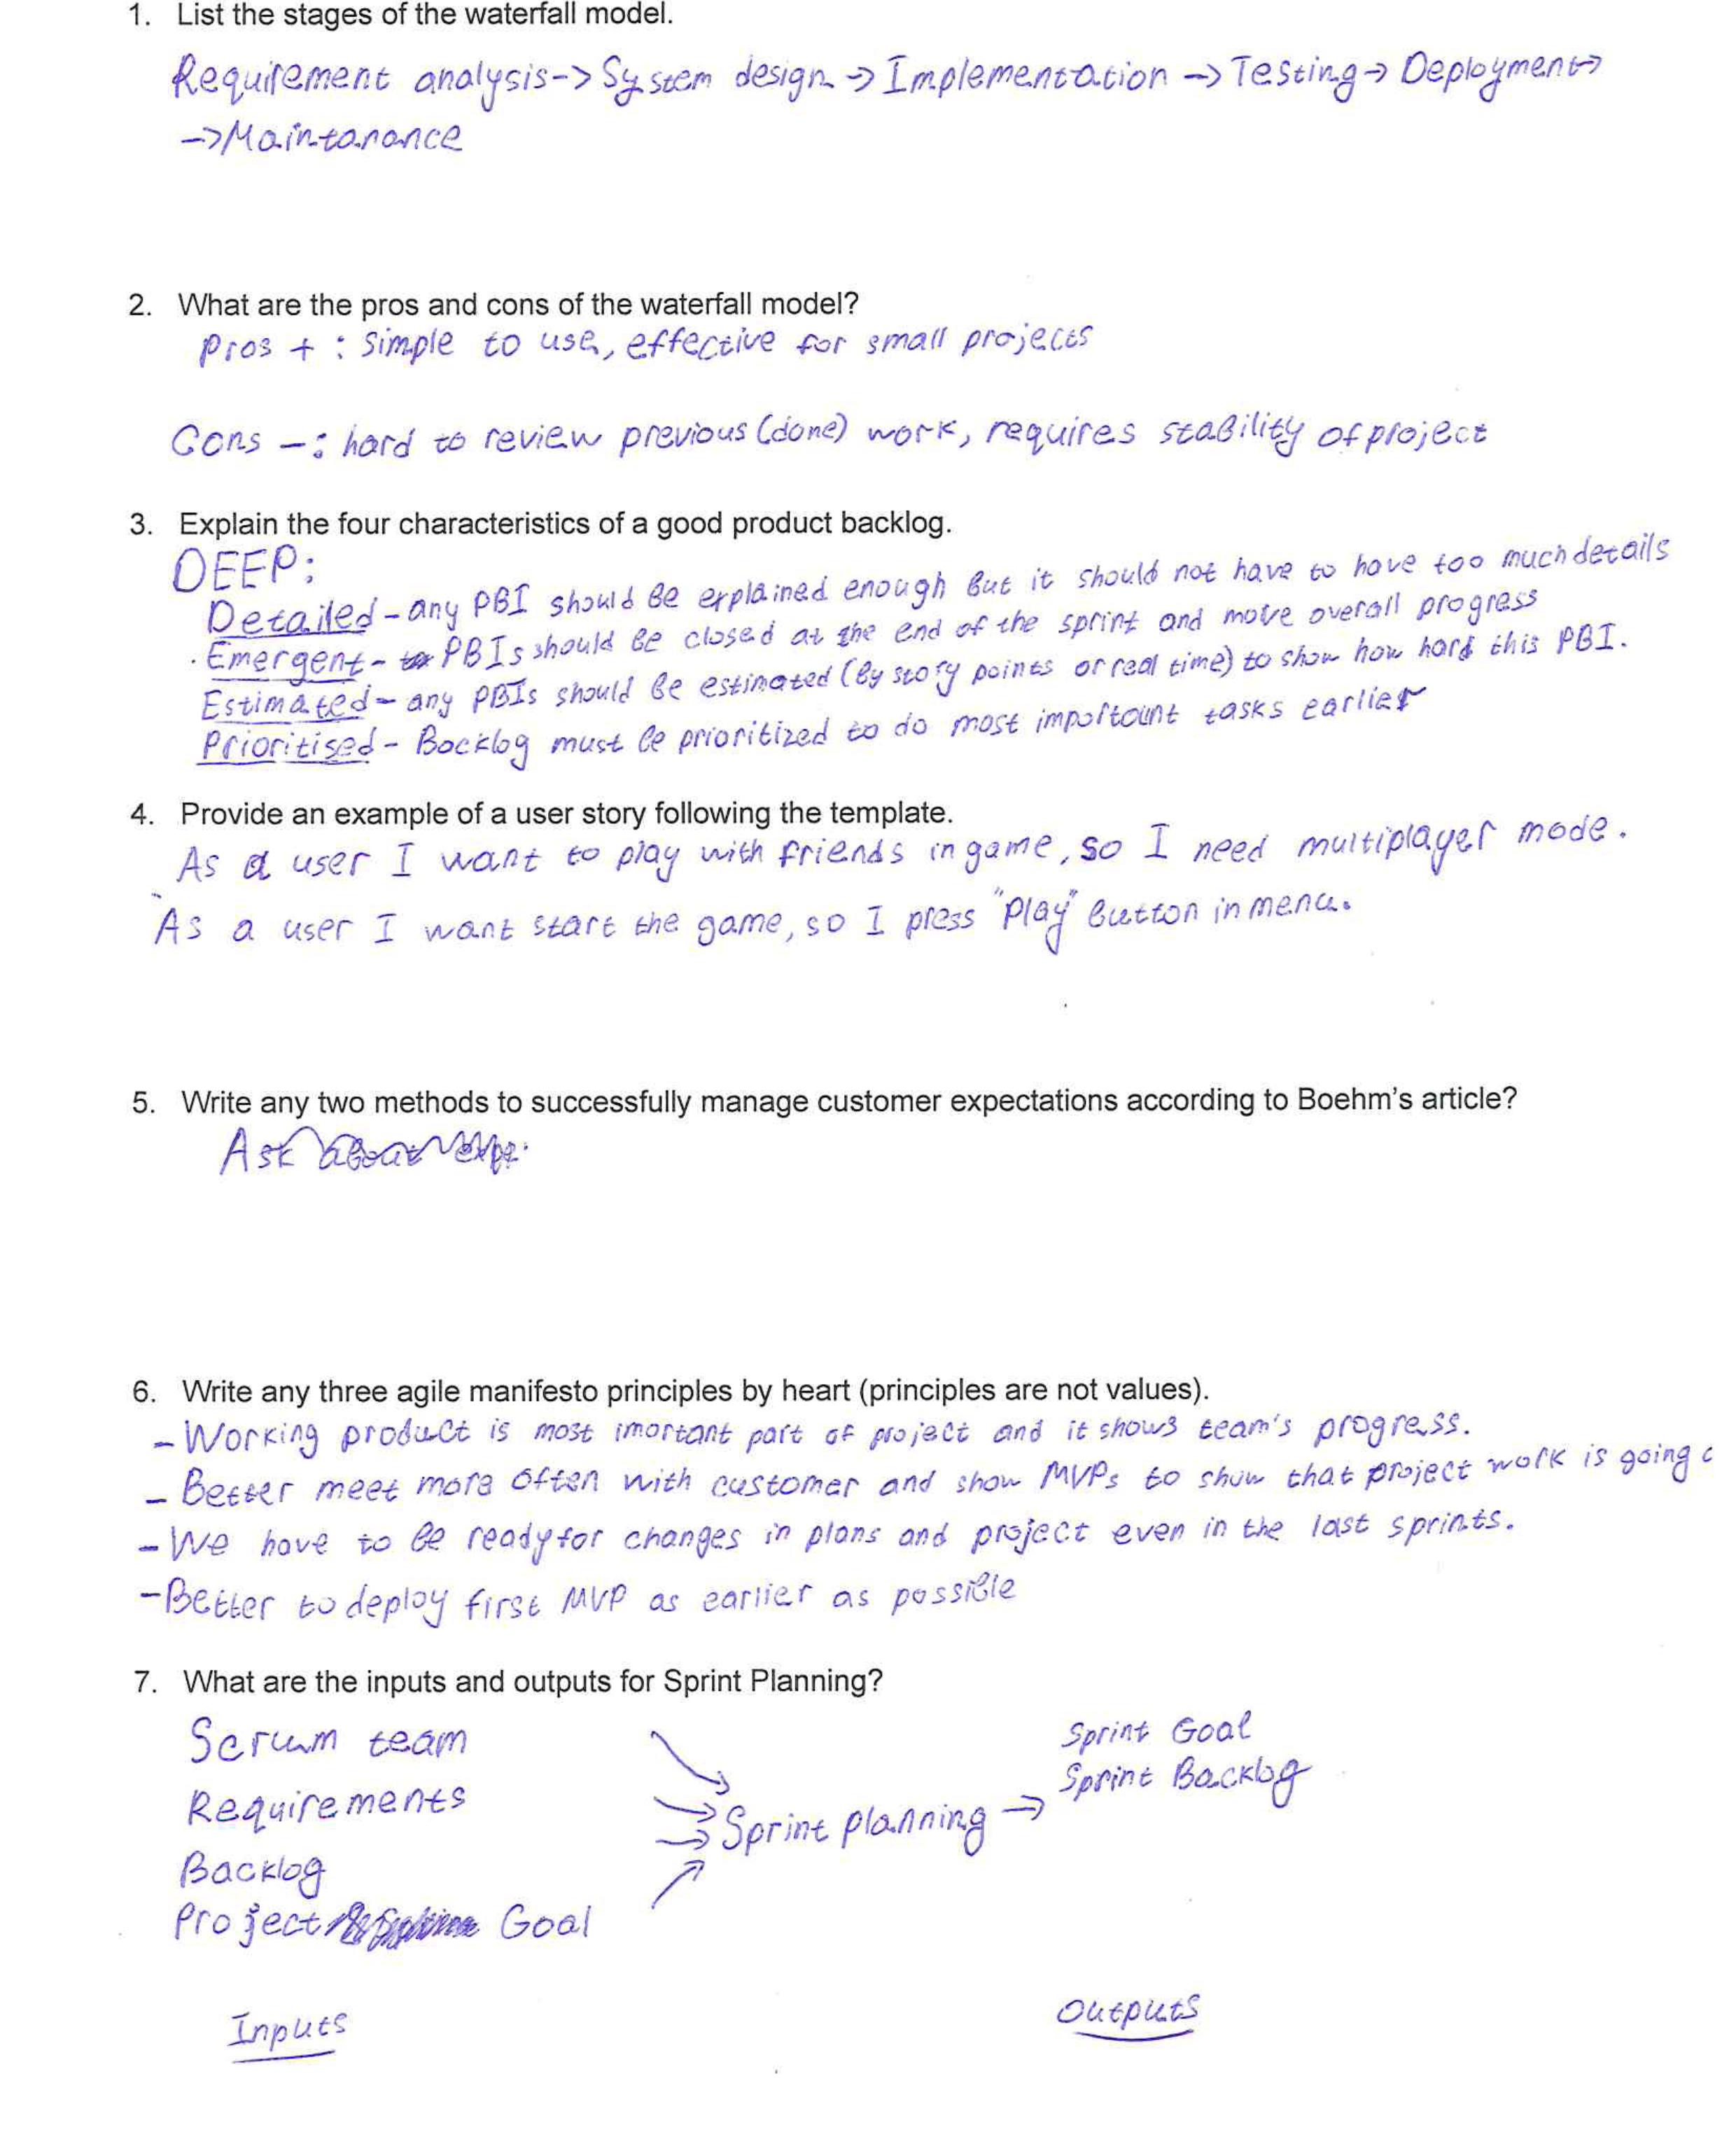 1. List the stages of the waterfall model.
Requirement analysis -> System design -> Implementation -> Testing -> Deployment ->
-> Maintanance
2. What are the pros and cons of the waterfall model?
Pros + : simple to use, effective for small projects
Cons - : hard to review previous (done) work, requires stability of project
3. Explain the four characteristics of a good product backlog.
DEEP:
Detailed - any PBI should be explained enough but it should not have to have too much details
Emergent - PBIs should be closed at the end of the sprint and move overall progress
Estimated - any PBIs should be estimated (by story points or real time) to show how hard this PBI.
Prioritised - Backlog must be prioritized to do most importaint tasks earlier
4. Provide an example of a user story following the template.
As a user I want to play with friends in game, so I need multiplayer mode.
As a user I want start the game, so I press "Play" button in menu.
5. Write any two methods to successfully manage customer expectations according to Boehm's article?
Ask about
6. Write any three agile manifesto principles by heart (principles are not values).
- Working product is most imortant part of project and it shows team's progress.
- Better meet more often with customer and show MVPs to show that project work is going
- We have to be ready for changes in plans and project even in the last sprints.
- Better to deploy first MVP as earlier as possible
7. What are the inputs and outputs for Sprint Planning?
Scrum team
Requirements
Backlog
Project Goal
-> Sprint planning ->
Sprint Goal
Sprint Backlog
Inputs
Outputs